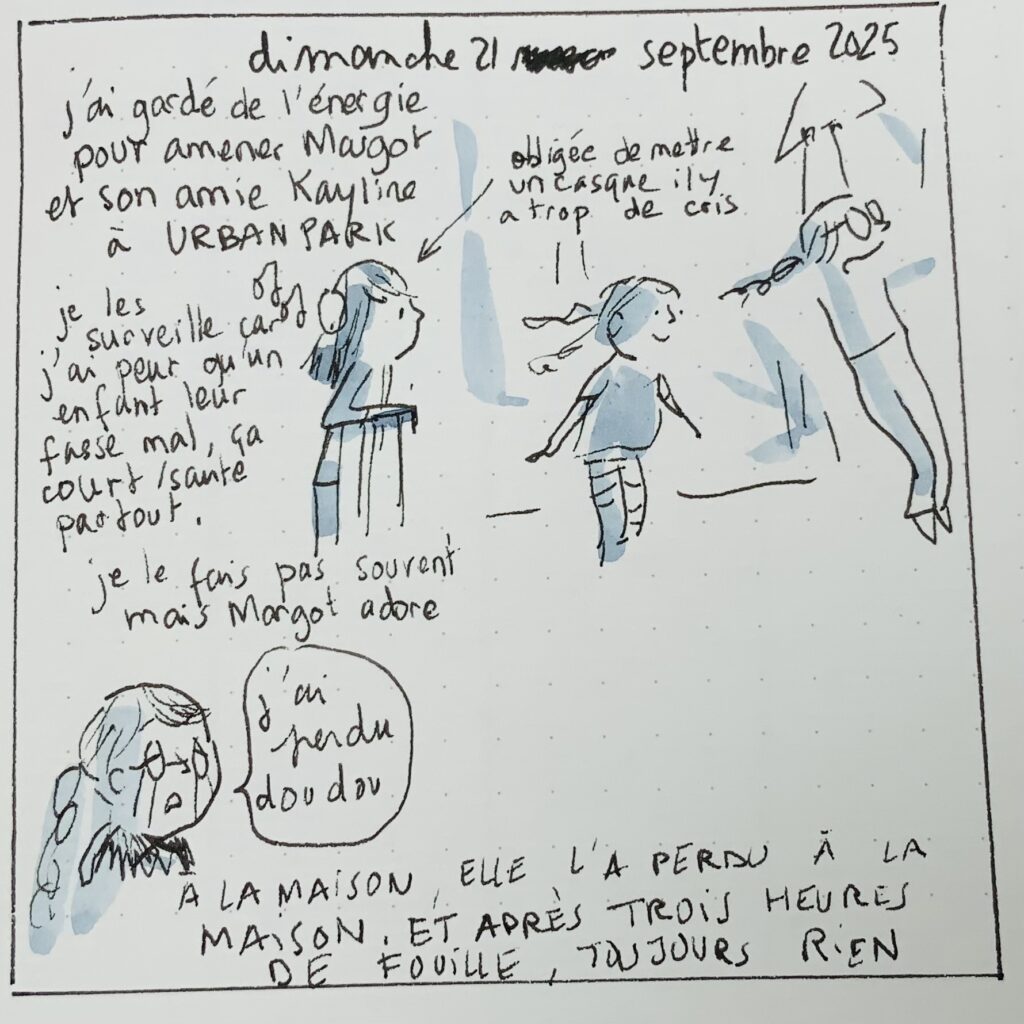 dimanche 21 septembre 2025
j'ai gardé de l'énergie
pour amener Margot
et son amie Kayline
à URBAN PARK
obligée de mettre
un casque il y
a trop de cris
je les
surveille car
j'ai peur qu'un
enfant leur
fasse mal, ça
court/saute
partout.
je le fais pas souvent
mais Margot adore
j'ai
perdu
doudou
A LA MAISON, ELLE L'A PERDU À LA
MAISON. ET APRÈS TROIS HEURES
DE FOUILLE, TOUJOURS RIEN